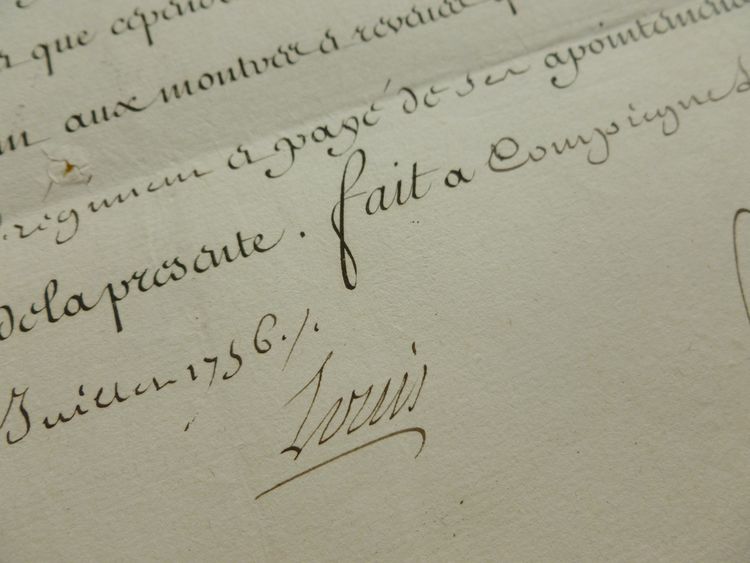 que cepen
aux montres & reveues
regiment & payé de ses apointemens
de la presente . fait a Compiegne
Juillet 1756 ./.
Louis